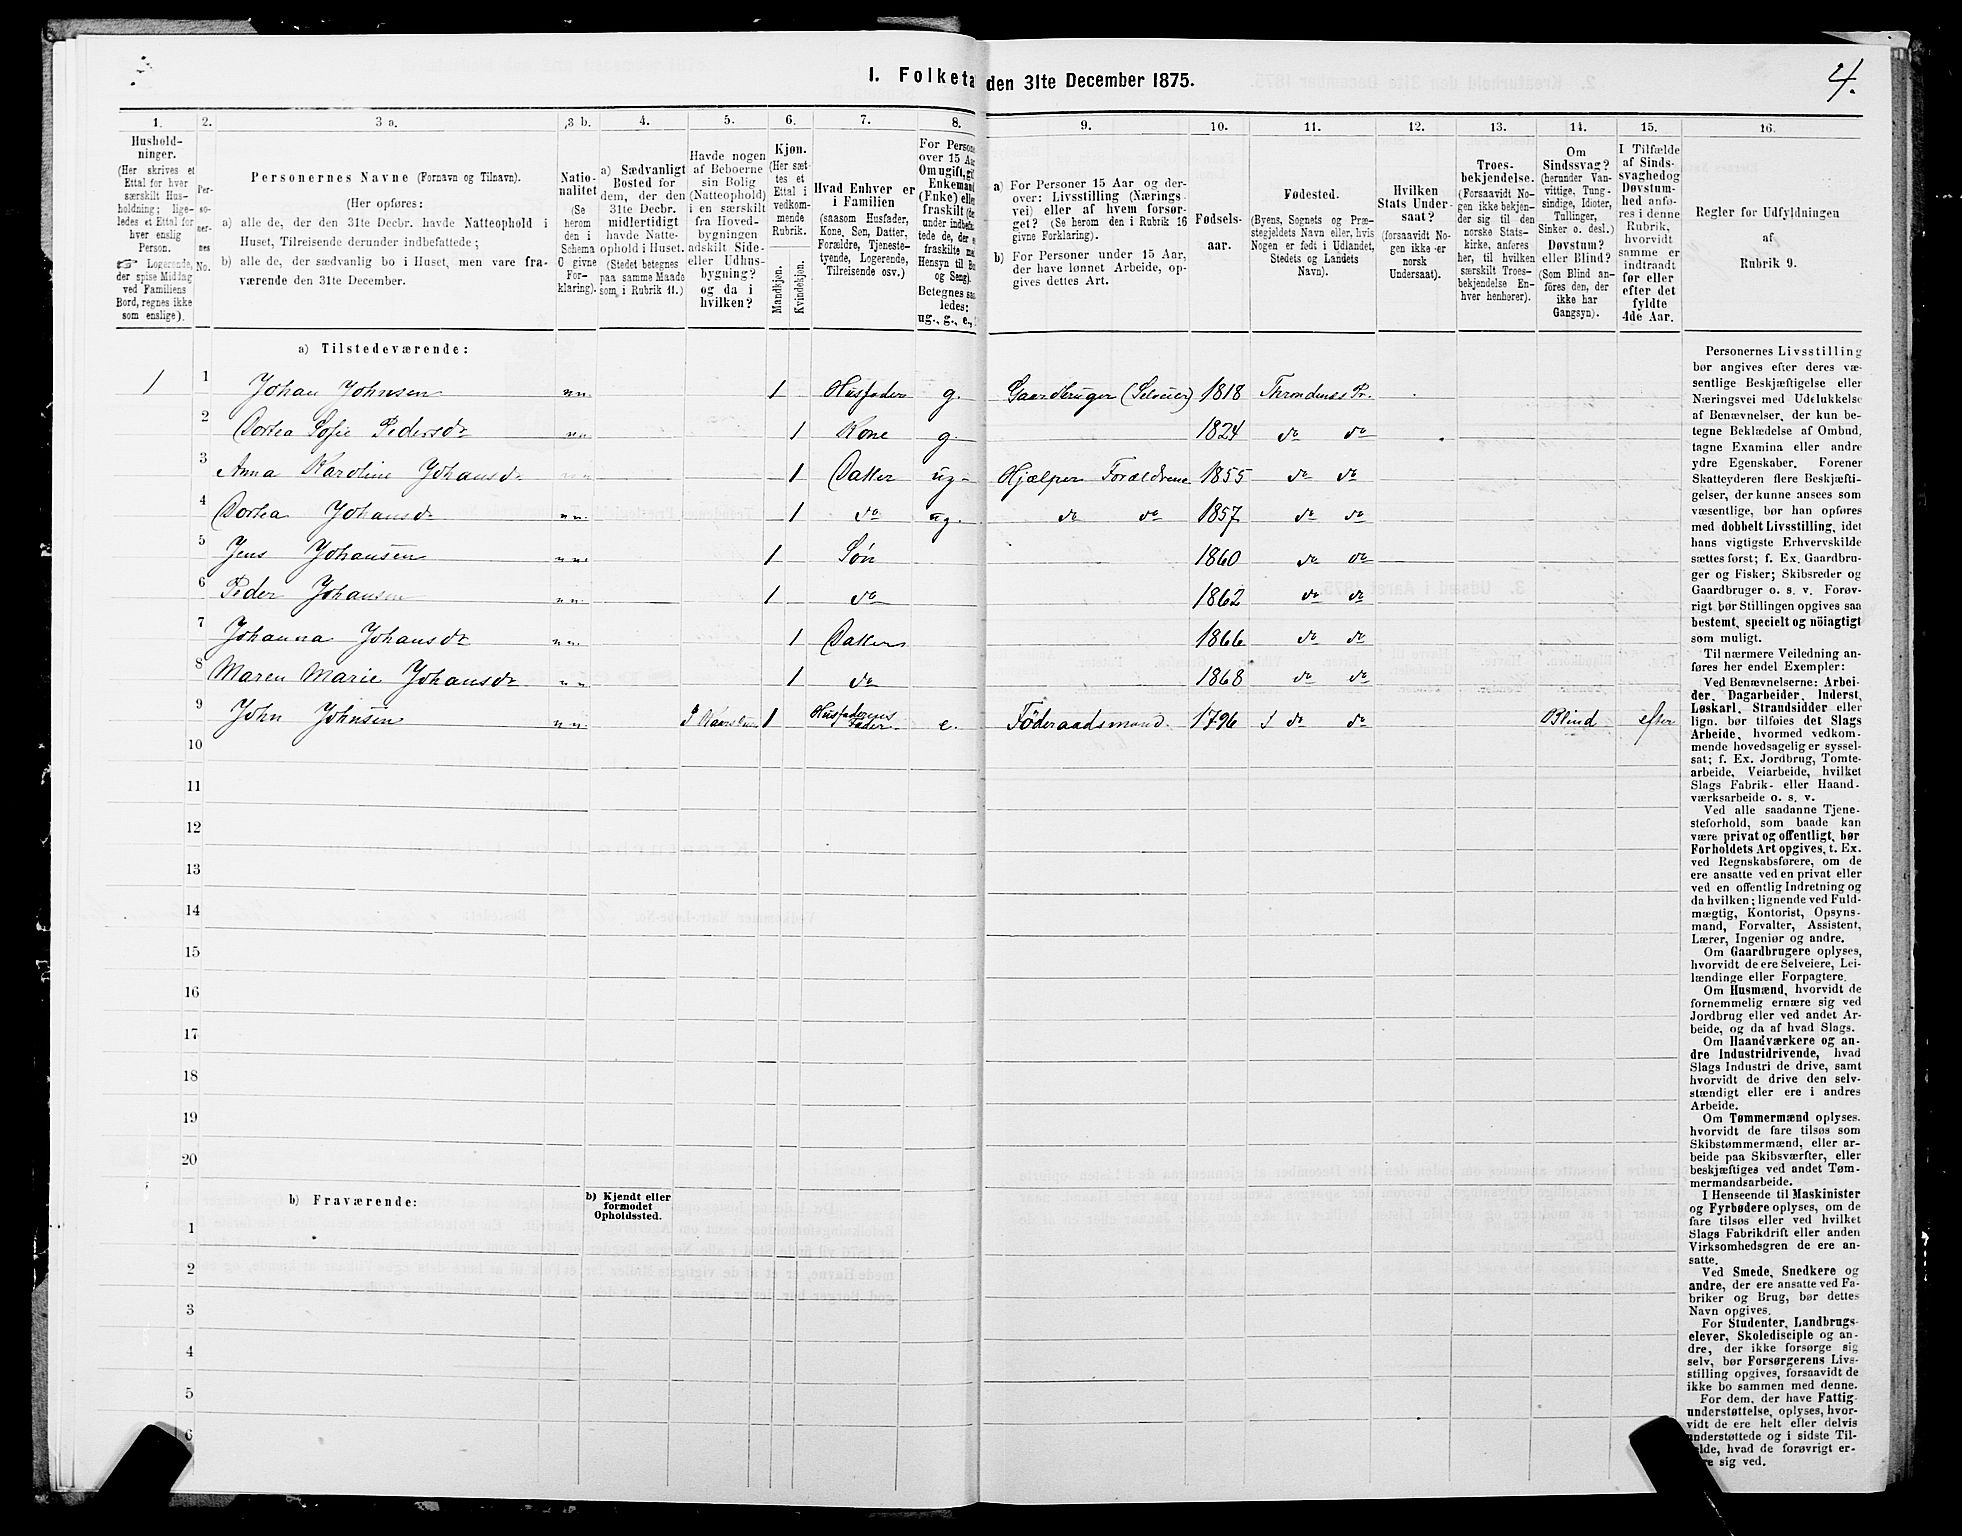 4.
1. Folketa den 31te December 1875.
1.
2.
3 a.
3 b.
4.
5.
6.
7.
8.
9.
10.
11.
12.
13.
14.
15.
16.
Hushold-
ninger.
(Her skrives et
Ettal for hver
særskilt Hus-
holdning; lige-
ledes et Ettal for
hver enslig
Person.
☞ Logerende,
der spise Middag
ved Familiens
Bord, regnes ikke
som enslige).
Per-
so-
ner-
nes
No.
Personernes Navne (Fornavn og Tilnavn).
(Her opføres:
a) alle de, der den 31te Decbr. havde Natteophold i
Huset, Tilreisende derunder indbefattede;
b) alle de, der sædvanlig bo i Huset, men vare fra-
værende den 31te December.
Natio-
nalitet
(Se
herom
den i
Schema
C givne
For-
klaring).
a) Sædvanligt
Bosted for
dem, der den
31te Decbr.
havde Natte-
ophold i Huset.
(Stedet betegnes
paa samme Maade
som i Rubrik 11.)
Havde nogen
af Beboerne
sin Bolig
(Natteophold)
i en særskilt
fra Hoved-
bygningen
adskilt Side-
eller Udhus-
bygning?
og da i
hvilken?
Kjøn.
(Her sæt-
tes et
Ettal i
vedkom-
mende
Rubrik.
Mandkjøn.
Kvindekjøn.
Hvad Enhver er
i Familien
(saasom Husfader,
Kone, Søn, Datter,
Forældre, Tjeneste-
tyende, Logerende,
Tilreisende osv.)
For Person
over 15 Aa
Om ugift, gif
Enkemand
(Enke) elle
fraskilt (de
under indbefa
tede de, der e
fraskilte me
Hensyn til Bo
og Seng).
Betegnes saa
ledes:
ug., g., e.,
a) For Personer 15 Aar og der-
over: Livsstilling (Nærings
vei) eller af hvem forsør-
get? (Se herom den i Rubrik 16
givne Forklaring).
b) For Personer under 15 Aar,
der have lønnet Arbeide, op-
gives dettes Art.
Fødsels-
aar.
Fødested.
(Byens, Sognets og Præ-
stegjeldets Navn eller, hvis
Nogen er født i Udlandet,
Stedets og Landets
Navn).
Hvilken
Stats Under-
saat?
(forsaavidt No-
gen ikke er
norsk
Undersaat).
Troes-
bekjendelse.
(Forsaavidt No-
gen ikke bekjen-
der sig til den
norske Stats-
kirke, anføres
her, til hvilken
særskilt Troes-
bekjendelse En-
hver henhører).
Om
Sindssvag?
(herunder Van-
vittige, Tung-
sindige, Idioter,
Tullinger,
Sinker o. desl.)
Døvstum?
eller Blind?
(Som Blind an-
føres den, der
ikke har
Gangsyn).
I Tilfælde
af Sinds-
svaghed og
Døvstum-
hed anfø-
res i denne
Rubrik,
hvorvidt
samme er
indtraadt
før eller
efter det
fyldte
4de Aar.
Regler for Udfyldningen
af
Rubrik 9.
a) Tilstedeværende:
1 1 Johan Johnsen n.n. 1 Husfader g. Gaardbruger (Selveier) 1818 Throndenæs Pr.
2 Dortea Sofie Pedersdr n.n. 1 Kone g. 1824 do do
3 Anna Karoline Johansdr n.n. 1 Datter ug. Hjælper Forældrene 1855 do do
4 Dortea Johansdr n.n. 1 do ug. do do 1857 do do
5 Jens Johansen n.n. 1 Søn 1860 do do
6 Peder Johansen n.n. 1 do 1862 do do
7 Johanna Johansdr n.n. 1 Datter 1866 do do
8 Maren Marie Johansdr n.n. 1 do 1868 do do
9 John Johnsen n.n. 1 Husfaderens Fader e. Föderaadsmand 1796 do do Blind efter
10
11
12
13
14
15
16
17
18
19
20
b) Fraværende:
b) Kjendt eller
formodet
Opholdssted.
1
2
3
4
5
6
Personernes Livsstilling
bør angives efter deres væ-
sentlige Beskjæftigelse eller
Næringsvei med Udelukkelse
af Benævnelser, der kun be-
tegne Beklædelse af Ombud,
tagne Examina eller andre
ydre Egenskaber. Forener
Skatteyderen flere Beskjæfti-
gelser, der kunne ansees som
væsentlige, bør han opføres
med dobbelt Livsstilling, idet
hans vigtigste Erhvervskilde
sættes først; f. Ex. Gaardbru-
ger og Fisker; Skibsreder og
Gaardbruger o. s. v. Forøv-
rigt bør Stillingen opgives saa
bestemt, specielt og nöiagtigt
som muligt.
Til nærmere Veiledning an-
føres her endel Exempler:
Ved Benævnelserne: Arbei-
der, Dagarbeider, Inderst,
Løskarl, Strandsidder eller
lign. bør tilføies det Slags
Arbeide, hvormed vedkom-
mende hovedsagelig er syssel-
sat; f. Ex. Jordbrug, Tomte-
arbeide, Veiarbeide, hvilket
Slags Fabrik- eller Haand-
værksarbeide o. s. v.
Ved alle saadanne Tjene-
steforhold, som baade kan
være privat og offentligt, bør
Forholdets Art opgives, t. Ex.
ved Regnskabsførere, om de
ere ansatte ved en privat eller
ved en offentlig Indretning og
da hvilken; lignende ved Fuld-
mægtig, Kontorist, Opsyns-
mand, Forvalter, Assistent,
Lærer, Ingeniør og andre.
Om Gaardbrugere oplyses,
hvorvidt de ere Selveiere, Lei-
lændinge eller Forpagtere.
Om Husmænd, hvorvidt de
fornemmelig ernære sig ved
Jordbrug eller ved andet Ar-
beide, og da af hvad Slags.
Om Haandværkere og an-
dre Industridrivende, hvad
Slags Industri de drive, samt
hvorvidt de drive den selv-
stændigt eller ere i andres
Arbeide.
Om Tømmermænd oplyses.
hvorvidt de fare tilsøs som
Skibstømmermænd, eller ar-
beide paa Skibsværfter, eller
beskjæftiges ved andet Tøm-
mermandsarbeide.
I Henseende til Maskinister
og Fyrbødere oplyses, om de
fare tilsøs eller ved hvilket
Slags Fabrikdrift eller anden
Virksomhedsgren de ere an-
satte.
Ved Smede, Snedkere og
andre, der ere ansatte ved Fa-
briker og Brug, bør dettes
Navn opgives.
For Studenter, Landbrugs-
elever, Skoledisciple og an-
dre, der ikke forsørge sig
selv, bør Forsørgerens Livs-
stilling opgives, forsaavidt de
ikke bo sammen med denne.
For dem, der have Fattig-
understøttelse, oplyses, hvor-
vidt de ere helt eller delvis
understøttede og i sidste Til-
ælde, hvad de forøvrigt er-
re sig ved.